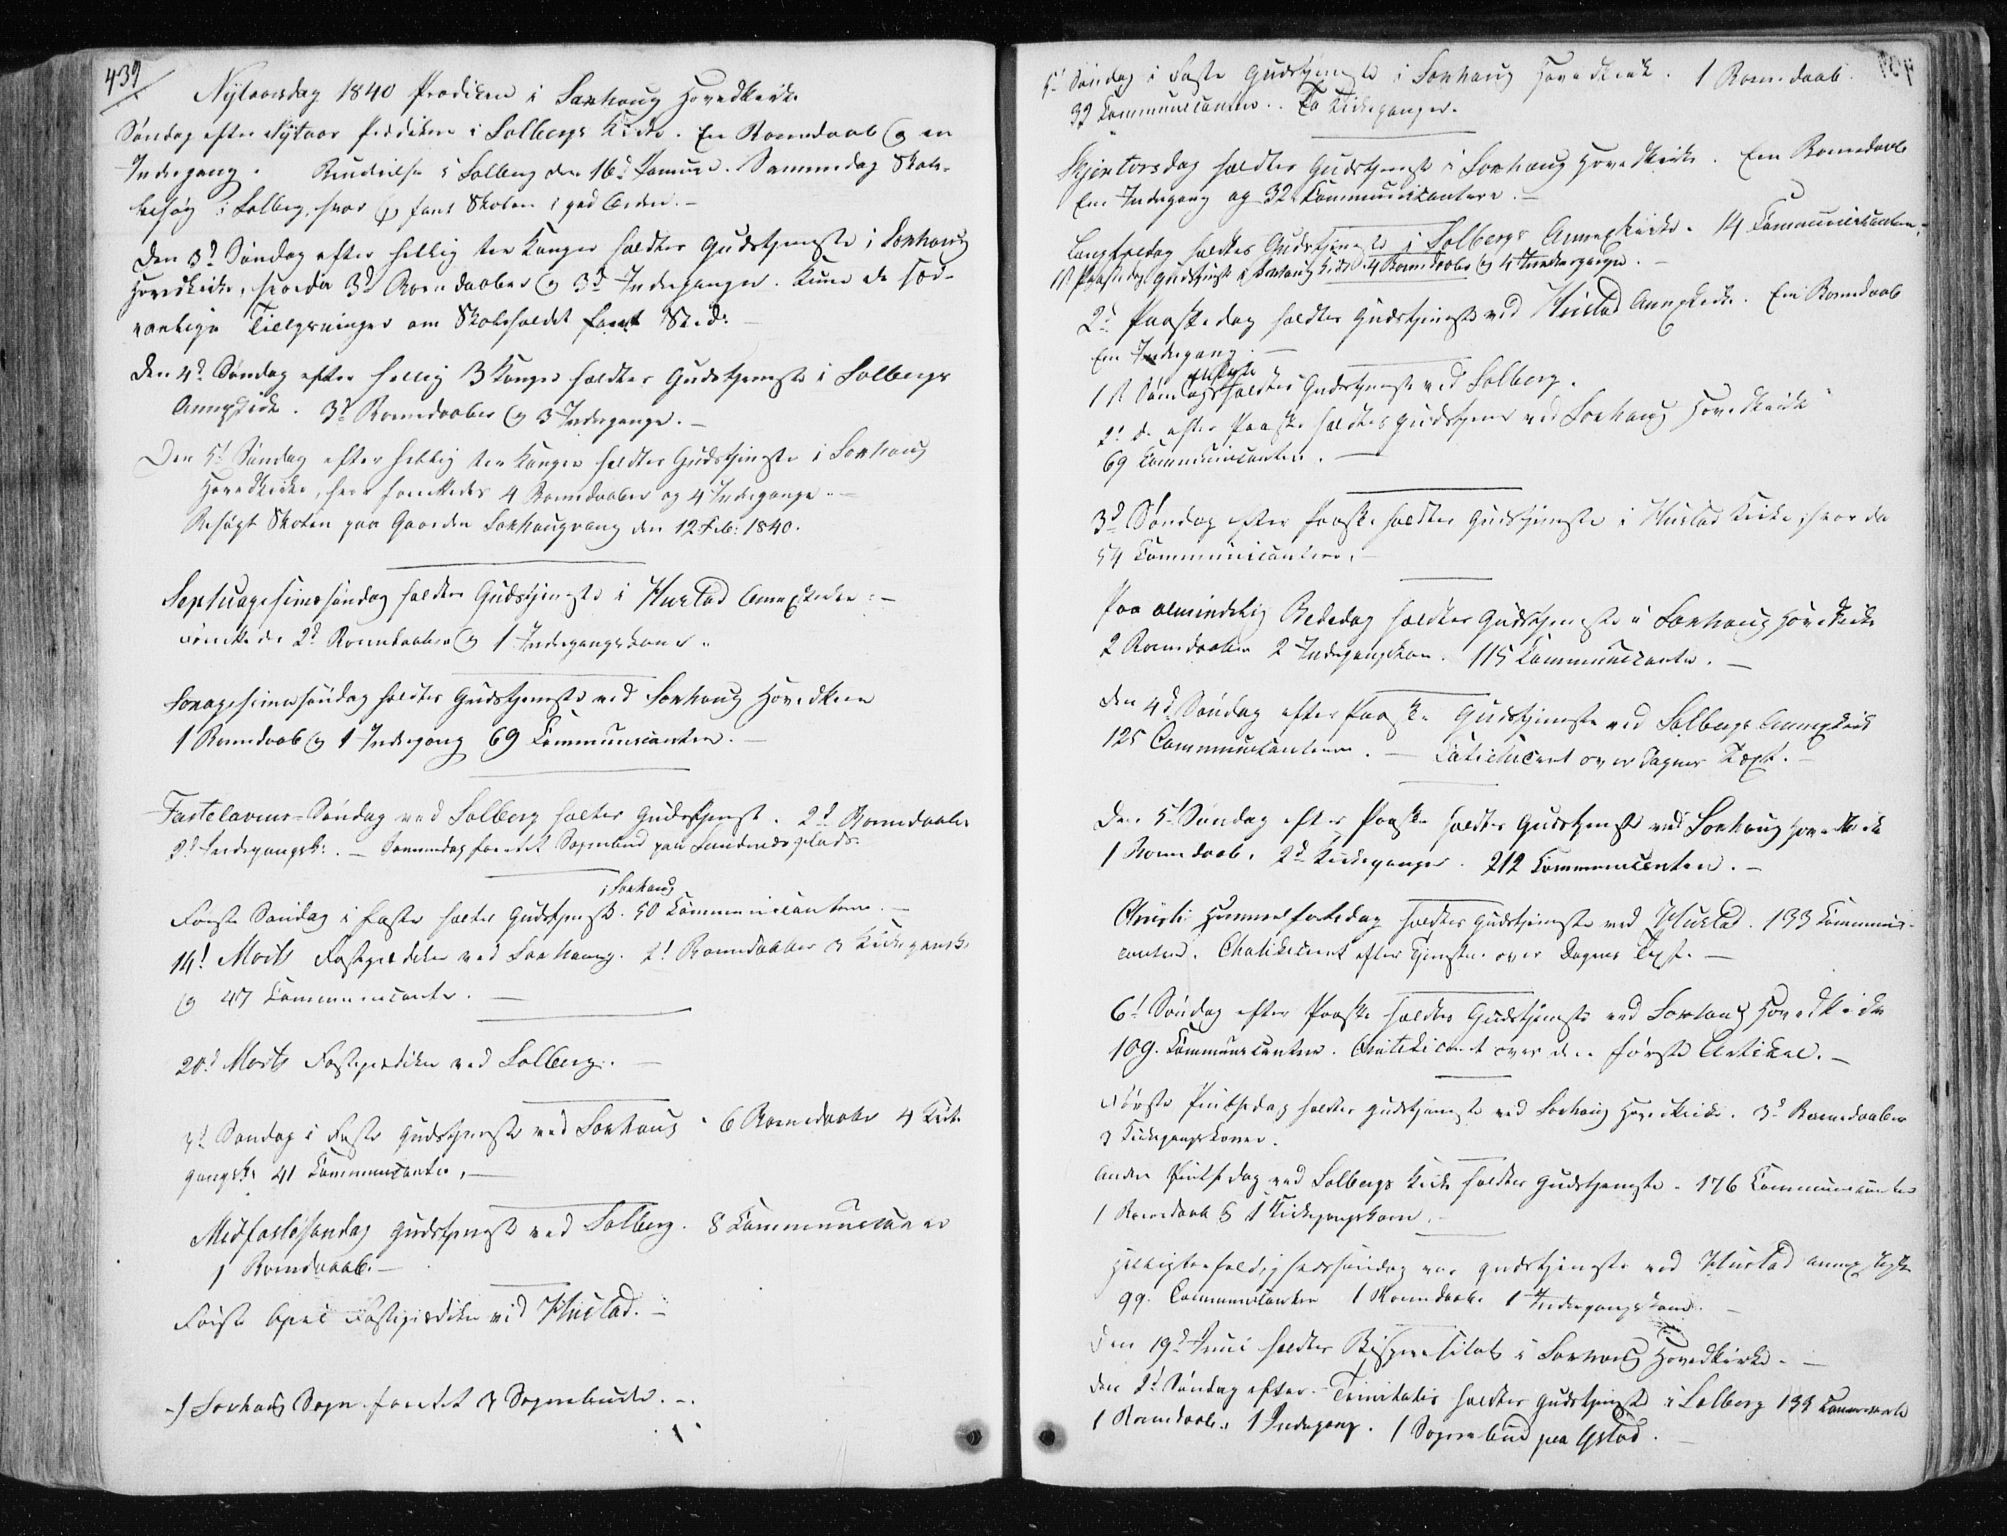 439
Nytaarsdag 1840 Prædiken i Saxhaug Hovedkirke
Søndag efter Nytaar Prædiken i Solbergs Kirke. En Barnedaab og en
Indgang. Beudvielse i Solberg den 16d Januar. Sammedag Skole-
besøg i Solberg, hvor fant Skolen i god Orden. —
Den 3d Søndag efter hellig tre Konger holdtes Gudstjeneste i Saxhaug
Hovedkirke, hvorda 3d Barnedaaber og 3d Indgange. Kun de sæd-
vanlige Tillysninger om Skoleholdet fandt Sted. —
Den 4d Søndag efter hellig 3 Konger holdtes Gudstjeneste i Solbergs
Annexkirke. 3d Barnedaaber og 3 Indgange. —
Den 5d Søndag efter hellig tre Konger holdtes Gudstjeneste i Saxhaug
Hovedkirke, hvor forrettedes 4 Barnedaaber og 4 Indgange. —
Besøgt Skolen paa Gaarden Saxhaugvang den 12 Feb: 1840.
Septuagesimasøndag holdtes Gudstjeneste i Hustad Annexkirke. —
forrettedes 2d Barnedaaber og 1 Indgangskone.
Sexagesimasøndag holdtes Gudstjeneste ved Saxhaug Hovedkirke
1 Barnedaab og 1 Indgang 69 Communicanter. —
Fastelavens-Søndag ved Solberg holtes Gudstjenest. 2d Barnedaaber
2d Indgangsk: — Sammedag forrettet Sognebud paa Sundnesplads.
i Saxhaug
Første Søndag i Faste holtes Gudstjenest. 50 Communicantere. —
14d Marts Fastepræдiken ved Saxhaug. 2d Barnedaaber 3 Kirkegangsk:
og 47 Communicanter. —
20d Marts Fasteprædiken ved Solberg. —
3d Søndag i Faste Gudstjeneste ved Saxhaug. 6 Barnedaaber 4 Kirke
gangsk: 41 Communicanter. —
Midfastesøndag Gudstjenest ved Solberg. 8 Communicanter
1 Barnedaab. —
Første April Fasteprædiken ved Hustad. —
I Saxhaug Sogn forrettet 3 Sognebude. —
5d Søndag i Faste Gudstjeneste i Saxhaug Hovedkirk. 1 Barnedaab.
32 Communicanter. To Kirkeganger.
Skjertorsdag holdtes Gudstjenest i Saxhaug Hovedkirke. Een Barnedaab
Een Indgang og 32 Communicantere. —
Langfredag holdtes Gudstjeneste i Solbergs Annexkirke. 14 Communicanter. —
1st Paaskedag Gudstjenst i Saxhaug Kirke. 4 Barnedaaber og 4 Indgange. —
2d Paaskedag holdtes Gudstjeneste ved Hustad Annexkirke. Een Barnedaab
Een Indgang. —
1st Søndag efter Paaske holdtes Gudstjenest ved Solberg.
2d D. efter Paaske holdtes Gudstjenes ved Saxhaug Hovedkirke
69 Communicanter. —
3d Søndag efter Paaske holdtes Gudstjeneste i Hustad Kirke, hvor da
54 Communicantere. —
Paa almindelig Bededag holdtes Gudstjeneste i Saxhaug Hovedkirke
2 Barnedaaber 2 Indgangskon. 115 Communicanter. —
Den 4d Søndag efter Paaske Gudstjeneste ved Solbergs Annexkirke
125 Communicantere. — Catechiceret over Dagens Text. —
Den 5d Søndag efter Paaske holdtes Gudstjeneste ved Saxhaug Hovedkirke
1 Barnedaab. 2d Kirkeganger. 212 Communicanter. —
Christi Himmelfartsdag holdtes Gudstjeneste ved Hustad. 133 Communi-
canter. Chatekiceret efter Tjenesten over Dagens Text. —
6d Søndag efter Paaske holdtes Gudstjeneste ved Saxhaug Hovedkirke
109. Communicanter. Chatekiceret over den første Artikel. —
Første Pintsedag holdtes Gudstjeneste ved Saxhaug Hovedkirke. 3d Barnedaaber
3 Kirkegangskoner.
Anden Pintsedag ved Solbergs Kirke holdtes Gudstjeneste. 176 Communicanter
1 Barnedaab & 1 Kirkegangskone. —
Helligtrefoldighedssøndag var Gudstjeneste ved Hustad Annexkirke
99. Communicanter 1 Barnedaab 1 Indgangskone. —
Den 19d Juni holdtes Bispevisitats i Saxhaug Hovedkirke. —
Den 2d Søndag efter Trinitatis holdtes Gudstjeneste i Solberg 133 Communicanter
1 Barnedaab. 1 Indgang. 1 Sognebud paa Gstad. —